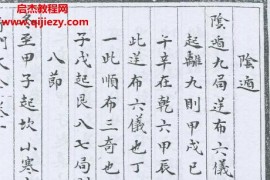 启杰教程网
www.qijiezy.com
陰遁
陰遁九局逆布六儀
起離九則甲戌巳
午辛在乾六甲辰
此逆布六儀也丁
一此順布三奇也
子戊起艮八七局則
八節
冬至甲子起坎小寒